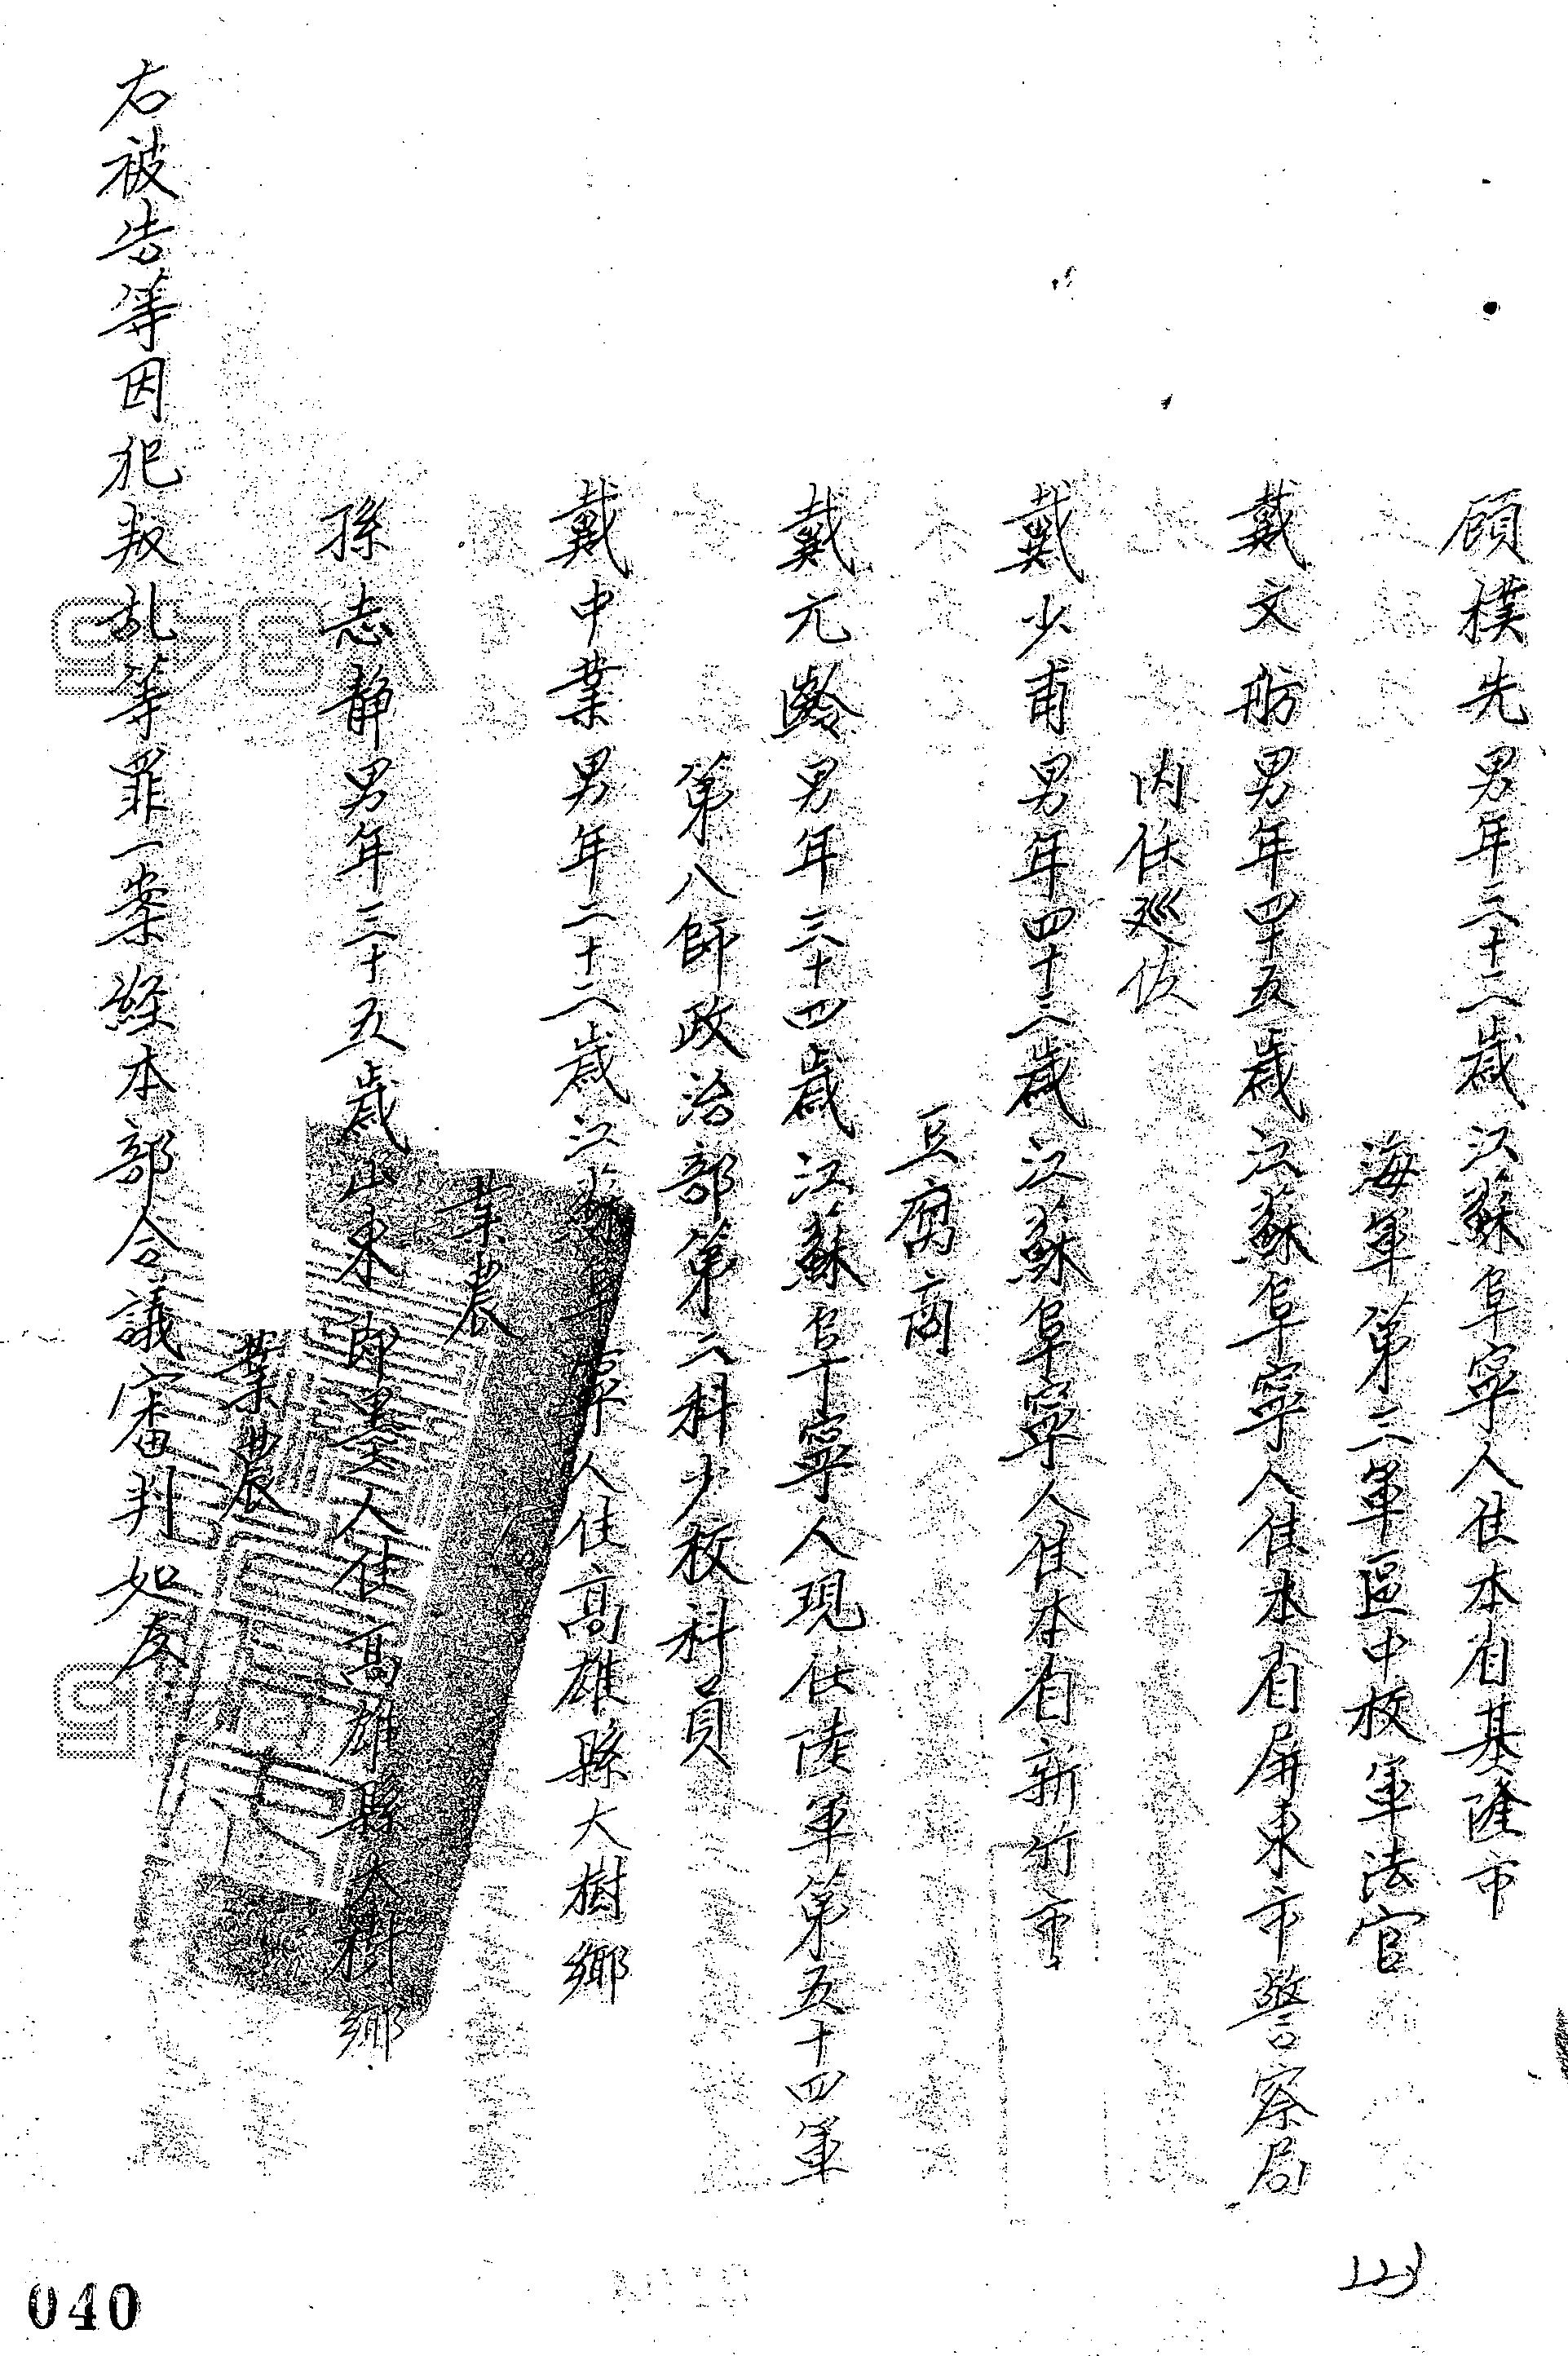 顧樸先男年三十二歲江蘇阜寧人住本省基隆市
海軍第三軍區中校軍法官
戴文舫男年四十五歲江蘇阜寧人住本省屏東市警察局
內任巡佐
戴少甫男年四十三歲江蘇阜寧人住本省新竹市
豆腐商
戴元齡男年三十四歲江蘇阜寧人現任陸軍第五十四軍
第八師政治部第二科少校科員
戴中業男年二十二歲江蘇阜寧人住高雄縣大樹鄉
業農
孫志靜男年三十五歲山東即墨人住高雄縣大樹鄉
業農
右被告等因犯叛乱等罪一案経本部合議審判如左
040